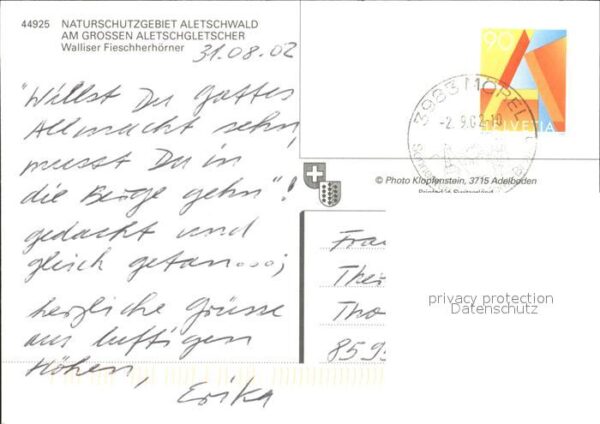 44925 NATURSCHUTZGEBIET ALETSCHWALD
AM GROSSEN ALETSCHGLETSCHER
Walliser Fieschherhörner
31.08.02
"Willst Du Gottes
Allmacht sehn,
musst Du in
die Berge gehn"!
gedacht und
gleich getan...;
herzliche Grüsse
aus luftigen
Höhen,
Erika
90
HELVETIA
3983 MÖREL
-2.9.02-10
© Photo Klopfenstein, 3715 Adelboden
Printed in Switzerland
Frau
Ther
Tho
859
privacy protection
Datenschutz